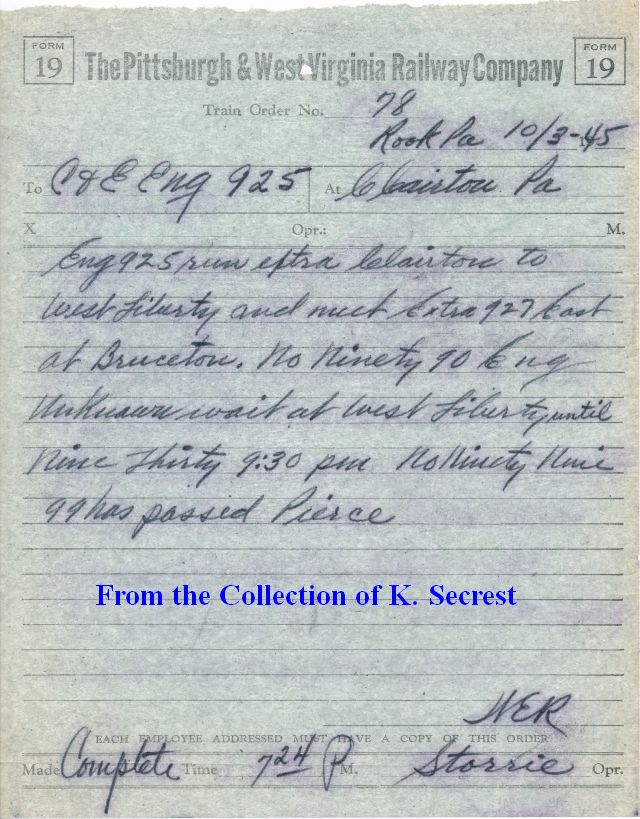 FORM 19 The Pittsburgh & West Virginia Railway Company FORM 19
Train Order No. 78
Rook Pa 10/3-1945
To C&E Eng 925 At Clairton Pa
X Opr.: M.
Eng 925 run extra Clairton to
West Liberty and meet Extra 927 East
at Bruceton. No Ninety 90 Eng
Unknown wait at West Liberty until
Nine Thirty 9:30 pm No Ninety Nine
99 has passed Pierce
From the Collection of K. Secrest
NER
EACH EMPLOYEE ADDRESSED MUST HAVE A COPY OF THIS ORDER
Made Complete Time 7 24 P M. Storrie Opr.